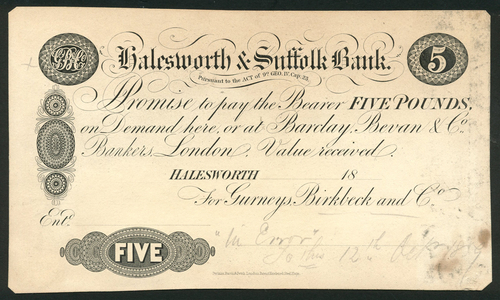 GB&Co
Halesworth & Suffolk Bank.
5
Pursuant to the ACT of 9th GEO. IV. Cap. 23.
I Promise to pay the Bearer FIVE POUNDS,
on Demand here, or at Barclay, Bevan & Co.
Bankers, London. Value received.
HALESWORTH 18
For Gurneys, Birkbeck and Co.
Entd.
FIVE
"In Error"
12th